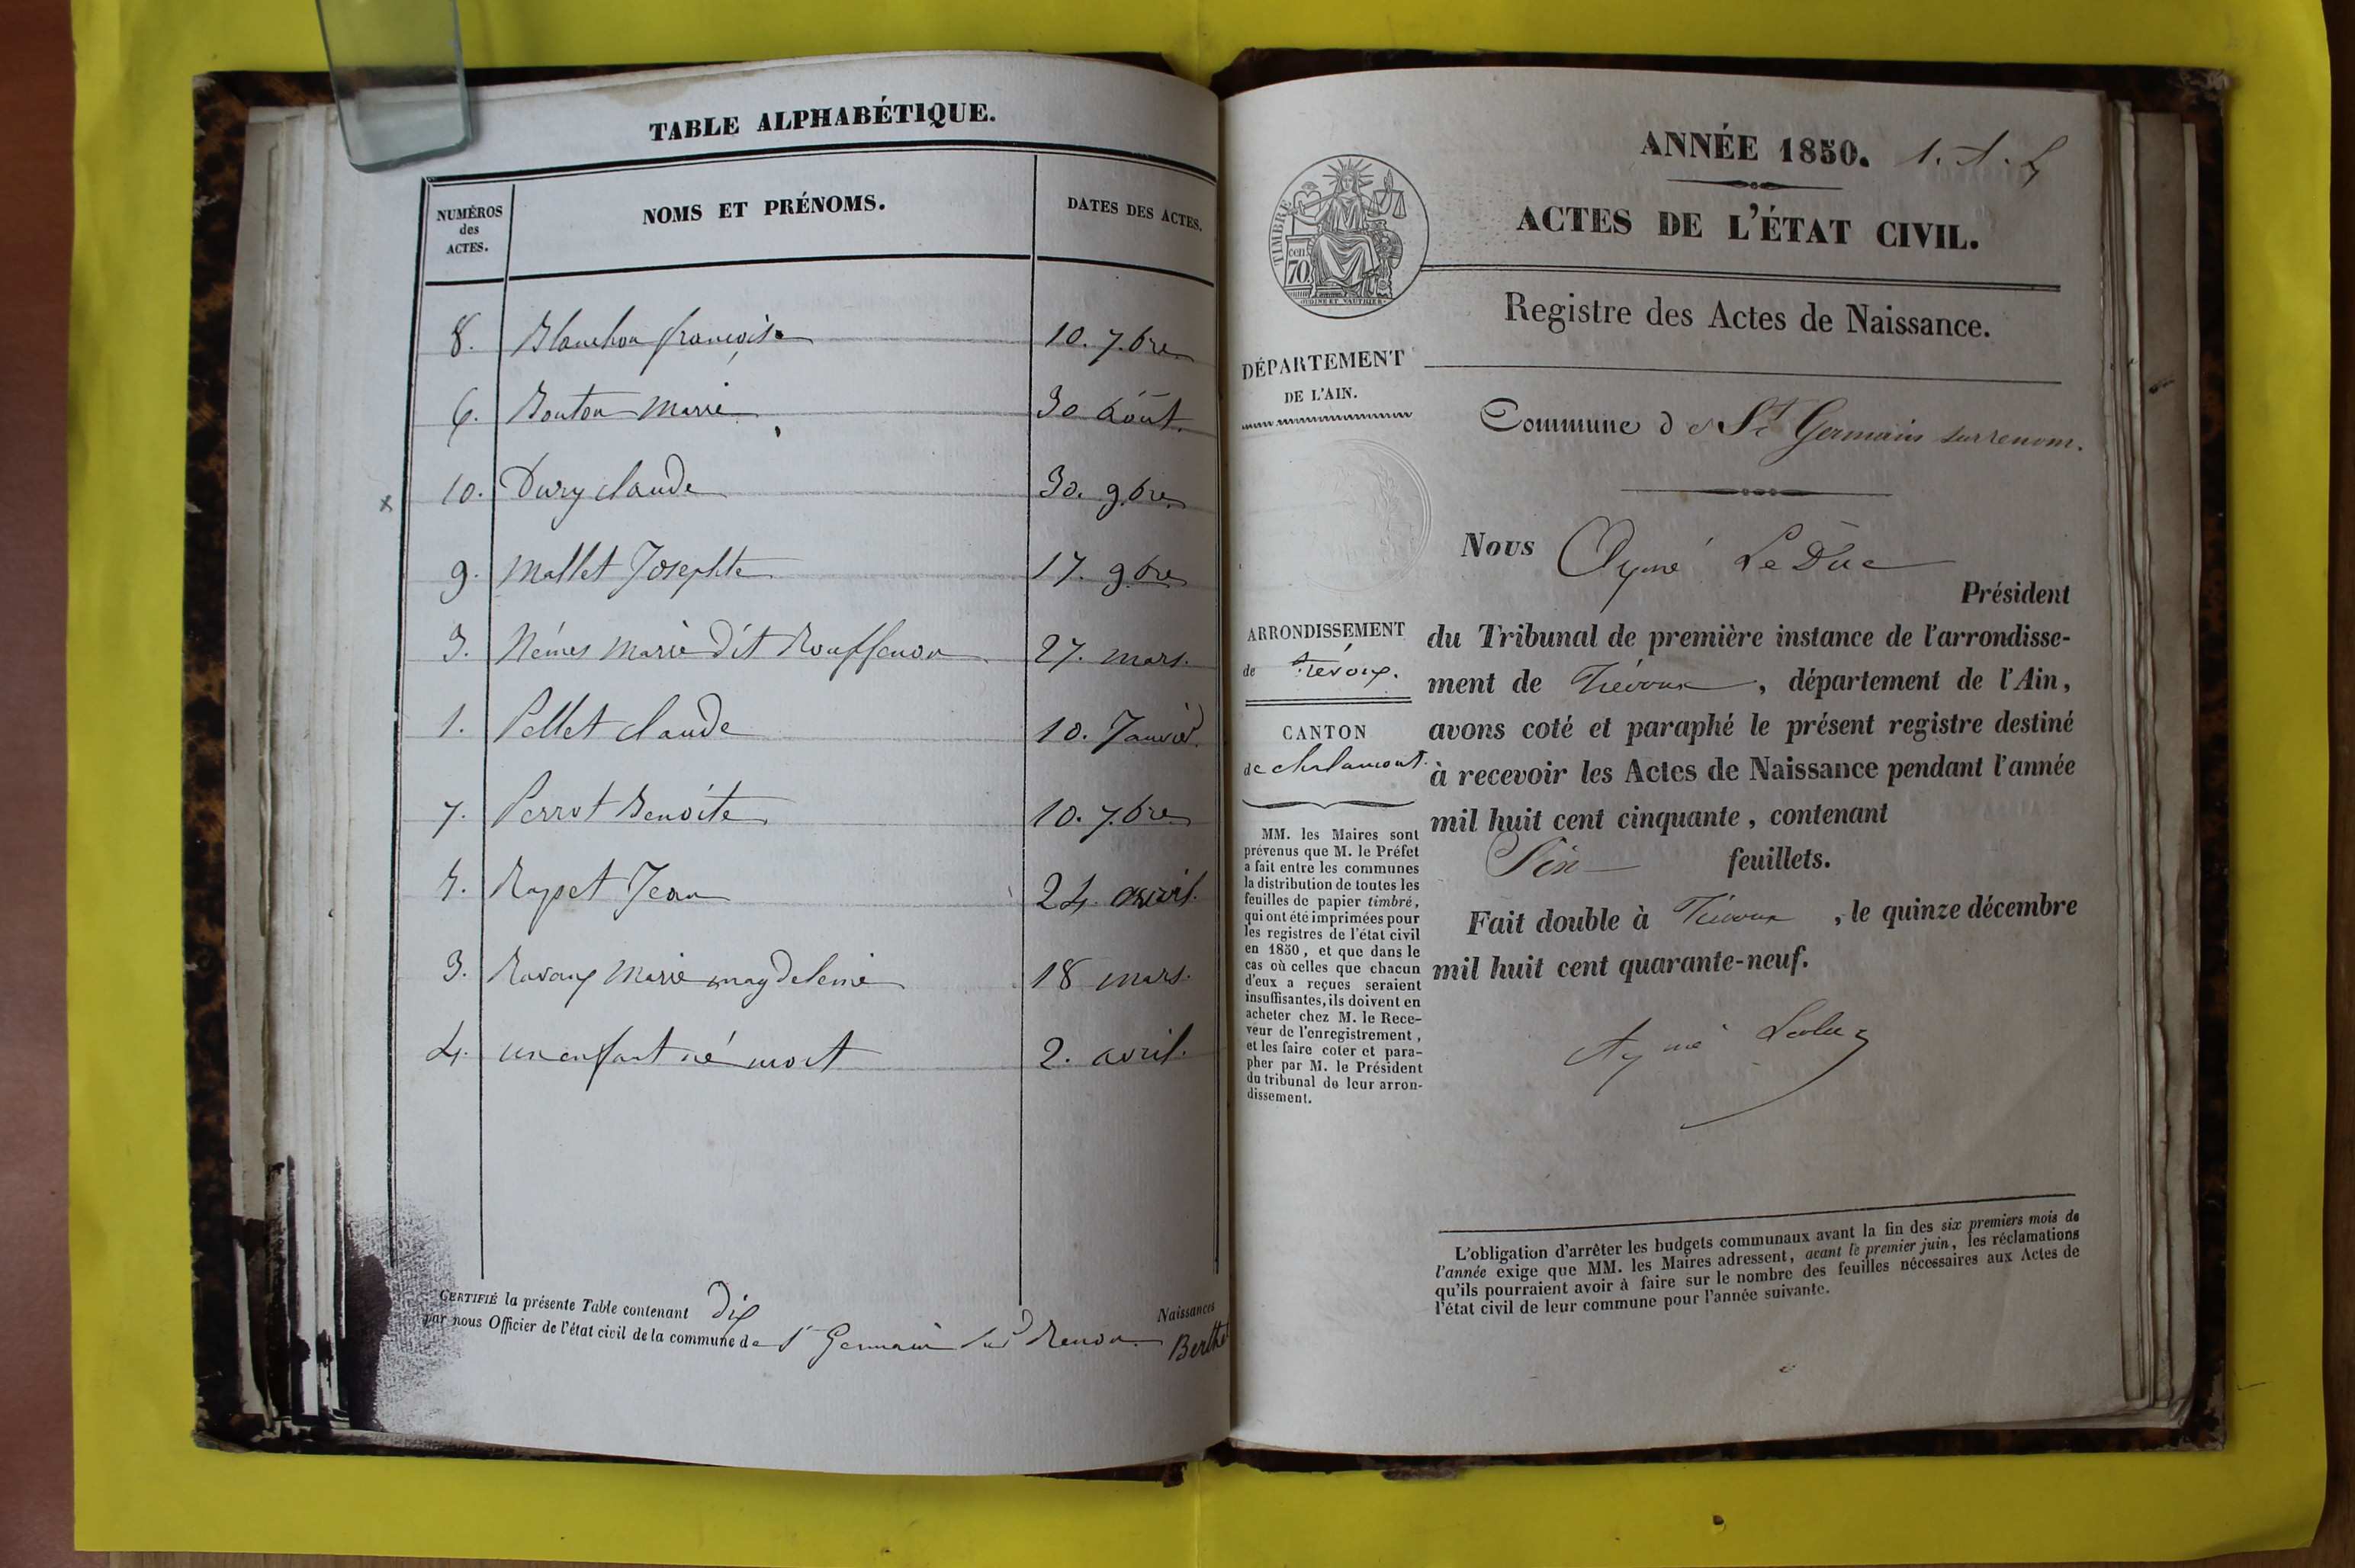 TABLE ALPHABÉTIQUE.
NUMÉROS
des
ACTES.
NOMS ET PRÉNOMS.
DATES DES ACTES.
8. Blanchon françoise 10. 7.bre
6. Bouton Marie 30 Août.
x 10. Dury claude 30. 9.bre
9. Mallet Josephte 17. 9.bre
3. Némes Marie Dit Rouffenon 27. mars.
1. Pellet claude 10. Janvier.
7. Perrot Benoite 10. 7.bre
5. Rapet Jean 24. avril.
3. Ravaux Marie magdeleine 18 mars.
4. un enfant né mort 2. avril.
CERTIFIÉ la présente Table contenant dix Naissances
par nous Officier de l'état civil de la commune de St Germain Sur Renon. Berthet
ANNÉE 1850. 1.
ACTES DE L'ÉTAT CIVIL.
TIMBRE
cen
70
Registre des Actes de Naissance.
DÉPARTEMENT
DE L'AIN.
Commune de St Germain sur renom.
Nous Aymé LeDuc
Président
ARRONDISSEMENT
de Trévoux.
CANTON
de chalamont.
du Tribunal de première instance de l'arrondisse-
ment de Trévoux, département de l'Ain,
avons coté et paraphé le présent registre destiné
à recevoir les Actes de Naissance pendant l'année
mil huit cent cinquante, contenant
Six feuillets.
Fait double à Trévoux, le quinze décembre
mil huit cent quarante-neuf.
Aymé Leduc
MM. les Maires sont
prévenus que M. le Préfet
a fait entre les communes
la distribution de toutes les
feuilles de papier timbré,
qui ont été imprimées pour
les registres de l'état civil
en 1850, et que dans le
cas où celles que chacun
d'eux a reçues seraient
insuffisantes, ils doivent en
acheter chez M. le Rece-
veur de l'enregistrement,
et les faire coter et para-
pher par M. le Président
du tribunal de leur arron-
dissement.
L'obligation d'arrêter les budgets communaux avant la fin des six premiers mois de
l'année exige que MM. les Maires adressent, avant le premier juin, les réclamations
qu'ils pourraient avoir à faire sur le nombre des feuilles nécessaires aux Actes de
l'état civil de leur commune pour l'année suivante.